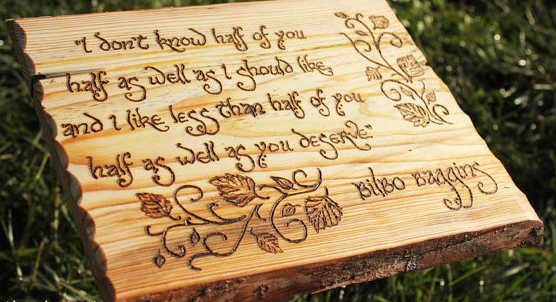 "i don't know half of you
half as well as i should like
and i like less than half of you
half as well as you deserve"
Bilbo Baggins